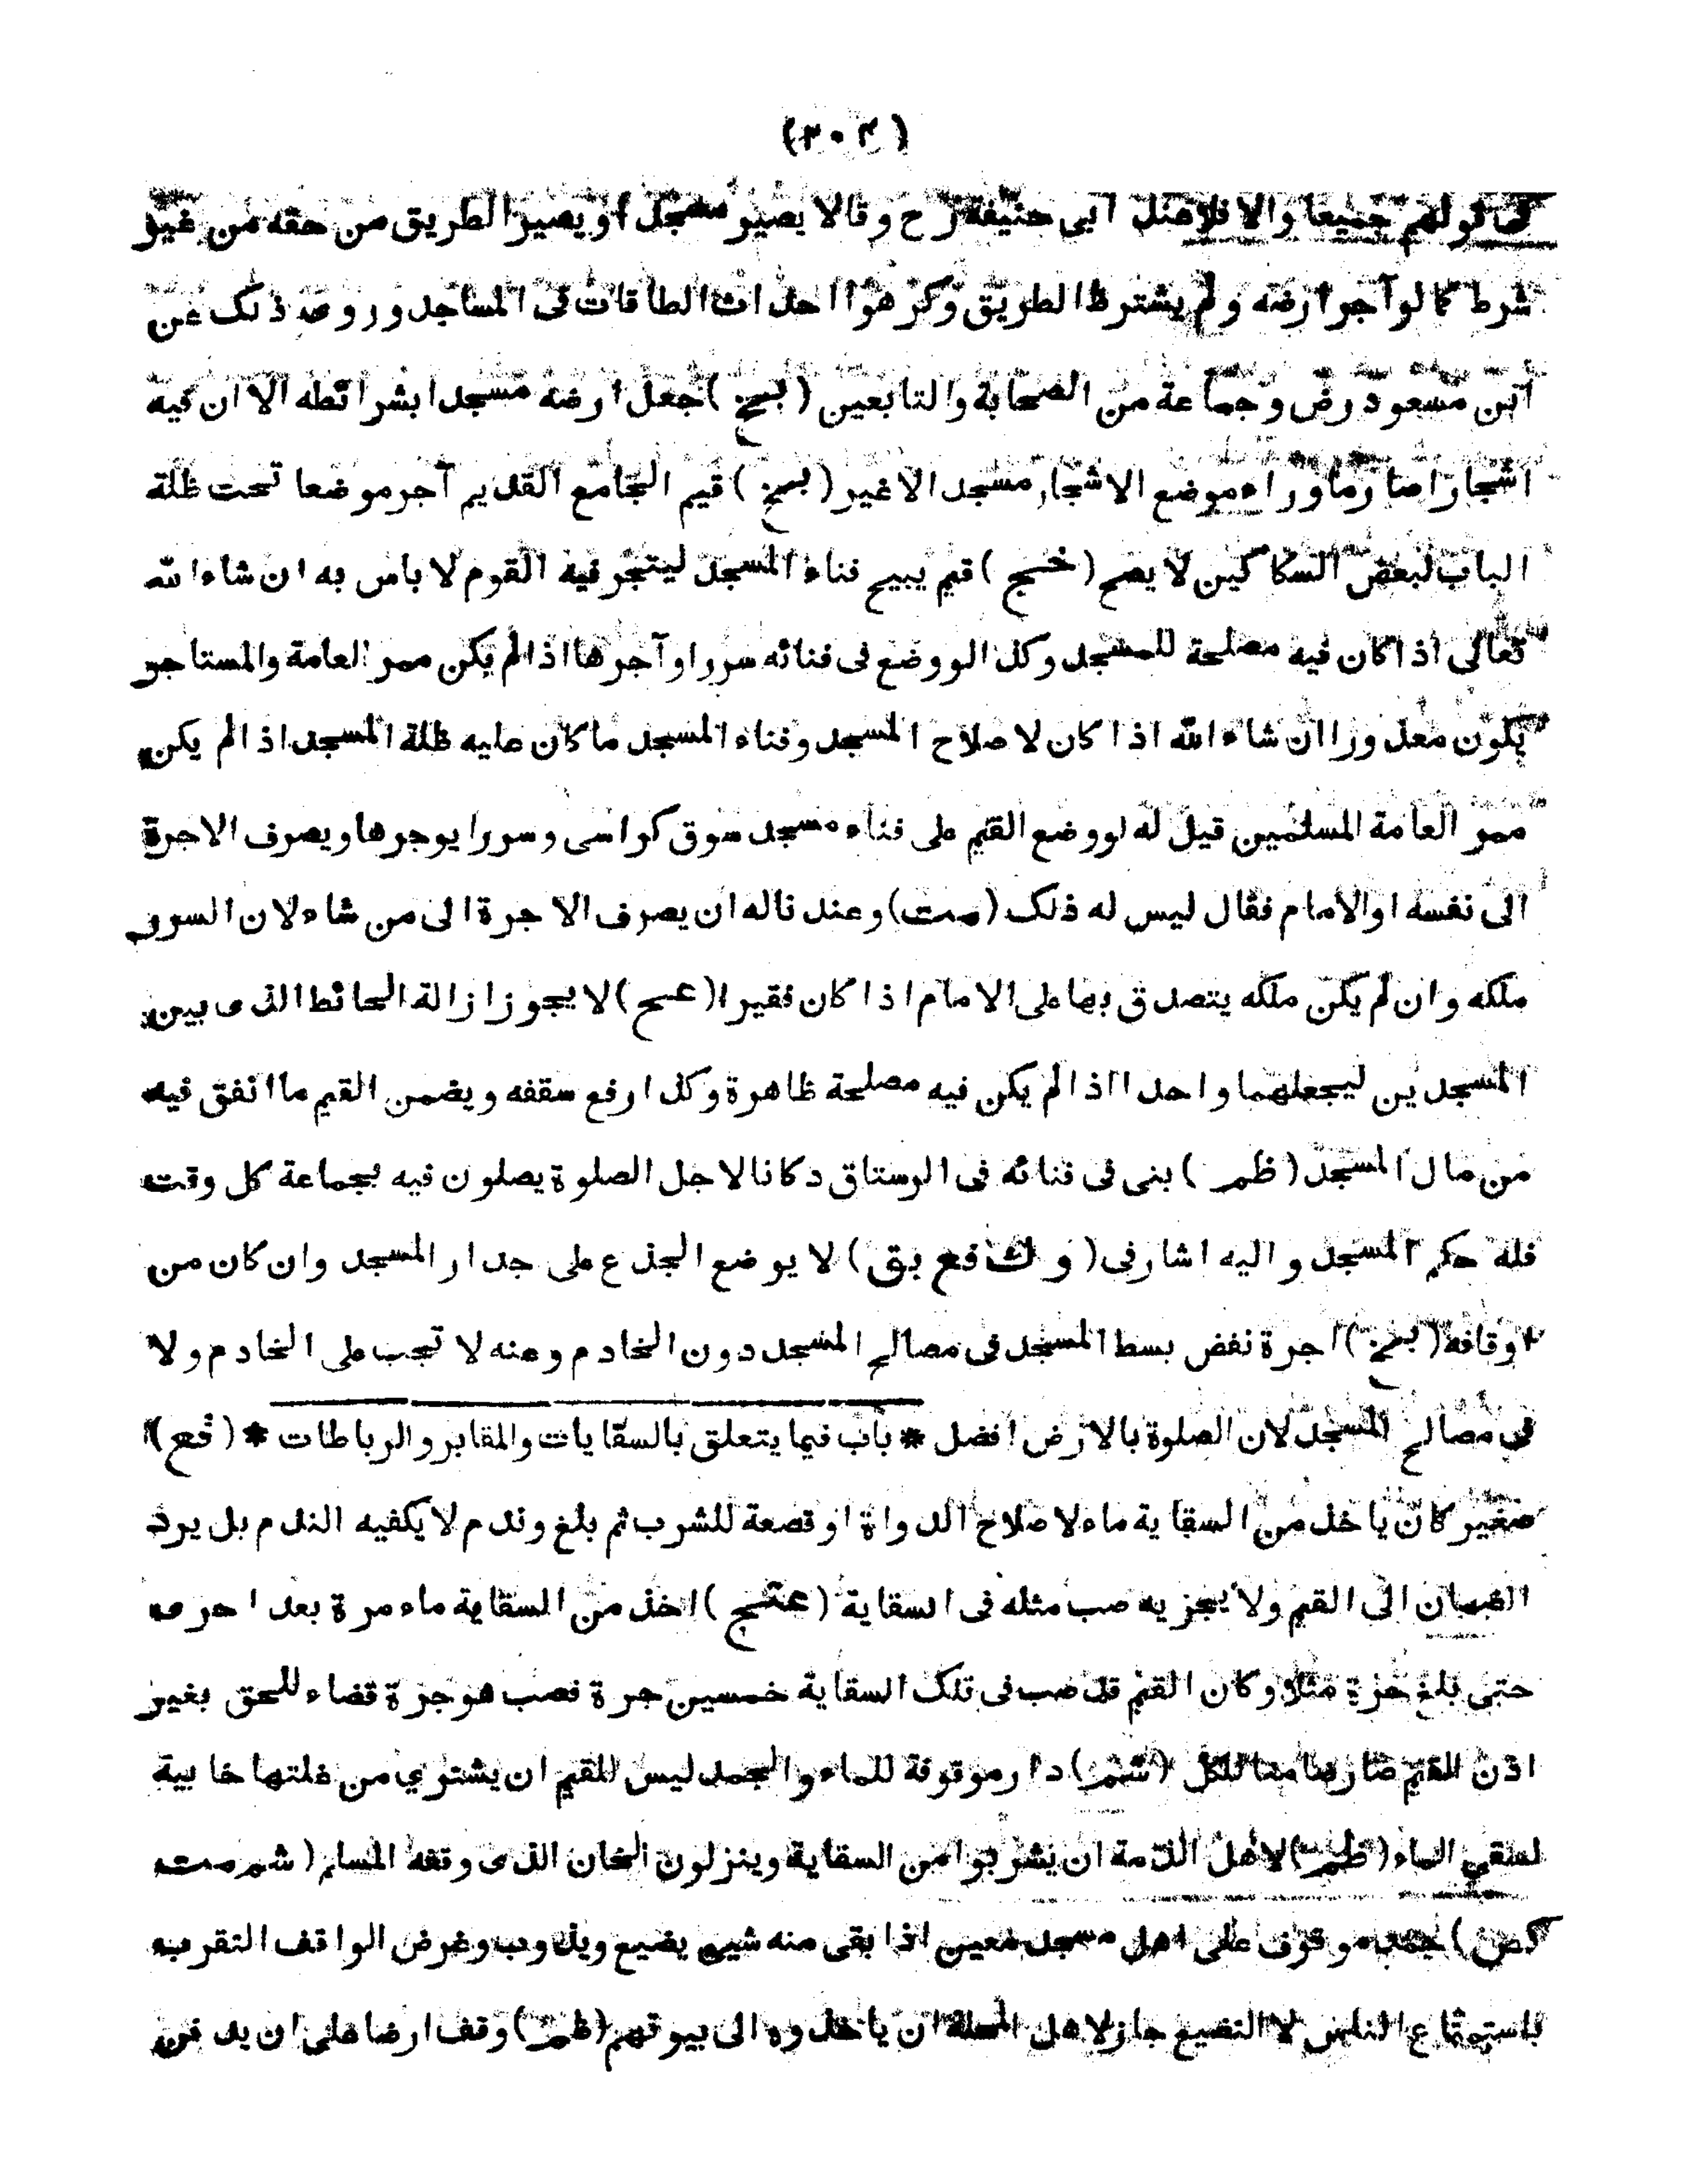 (٣٠٢)
فى قولهم جميعا والا فلا عند ابى حنيفة رح وقالا يصير مسجدا ويصير الطريق من حقه من غير
شرط كما لو آجر ارضه ولم يشترط الطريق وكرهوا احداث الطاقات فى المساجد وروى ذلك عن
ابن مسعود رض وجماعة من الصحابة والتابعين (بخ) جعل ارضه مسجدا بشرائطه الا ان فيه
اشجارا صار ما وراء موضع الاشجار مسجد الا غير (بخ) قيم الجامع القديم آجر موضعا تحت ظلة
الباب لبعض السكاكين لا يصح (خج) قيم يبيح فناء المسجد ليتجر فيه القوم لا باس به ان شاء الله
تعالى اذا كان فيه مصلحة للمسجد وكذا لو وضع فى فنائه سررا وآجرها اذا لم يكن ممر العامة والمستاجر
يكون معذورا ان شاء الله اذا كان لا صلاح المسجد وفناء المسجد ما كان عليه ظلة المسجد اذا لم يكن
ممر العامة المسلمين قيل له لو وضع القيم على فناء مسجد سوق كراسى وسررا يوجرها ويصرف الاجرة
الى نفسه او الامام فقال ليس له ذلك (مت) وعندنا له ان يصرف الاجرة الى من شاء لان السرر
ملكه وان لم يكن ملكه يتصدق بها على الامام اذا كان فقيرا (عح) لا يجوز ازالة الحائط الذى بين
المسجدين ليجعلهما واحدا اذا لم يكن فيه مصلحة ظاهرة وكذا رفع سقفه ويضمن القيم ما انفق فيه
من مال المسجد (ظم) بنى فى فنائه فى الرستاق دكانا لاجل الصلوة يصلون فيه بجماعة كل وقت
فله حكم المسجد واليه اشار فى (و ك فع بق) لا يوضع الجذع على جدار المسجد وان كان من
اوقافه (بخ) اجرة نفض بسط المسجد فى مصالح المسجد دون الخادم وعنه لا تجب على الخادم ولا
فى مصالح المسجد لان الصلوة بالارض افضل * باب فيما يتعلق بالسقايات والمقابر والرباطات * (قع)
صغير كان ياخذ من السقاية ماء لا صلاح الدواة او قصعة للشرب ثم بلغ وندم لا يكفيه الندم بل يرد
الضمان الى القيم ولا يجزيه صب مثله فى السقاية (عتج) اخذ من السقاية ماء مرة بعد اخرى
حتى بلغ جرة مثلا وكان القيم قد صب فى تلك السقاية خمسين جرة فصب هو جرة قضاء للحق بغير
اذن القيم صار ضامنا للكل (شم) دار موقوفة للماء والجمد ليس للقيم ان يشترى من غلتها خابية
لسقى الماء (ظم) لاهل الذمة ان يشربوا من السقاية وينزلون الخان الذى وقفه المسلم (شم مت
كص) جمد موقوف على اهل مسجد معين اذا بقى منه شىء يضيع ويذوب وغرض الواقف التقرب
باستمتاع الناس لا التضيع جاز لاهل المحلة ان ياخذوه الى بيوتهم (ظم) وقف ارضا على ان يدفن